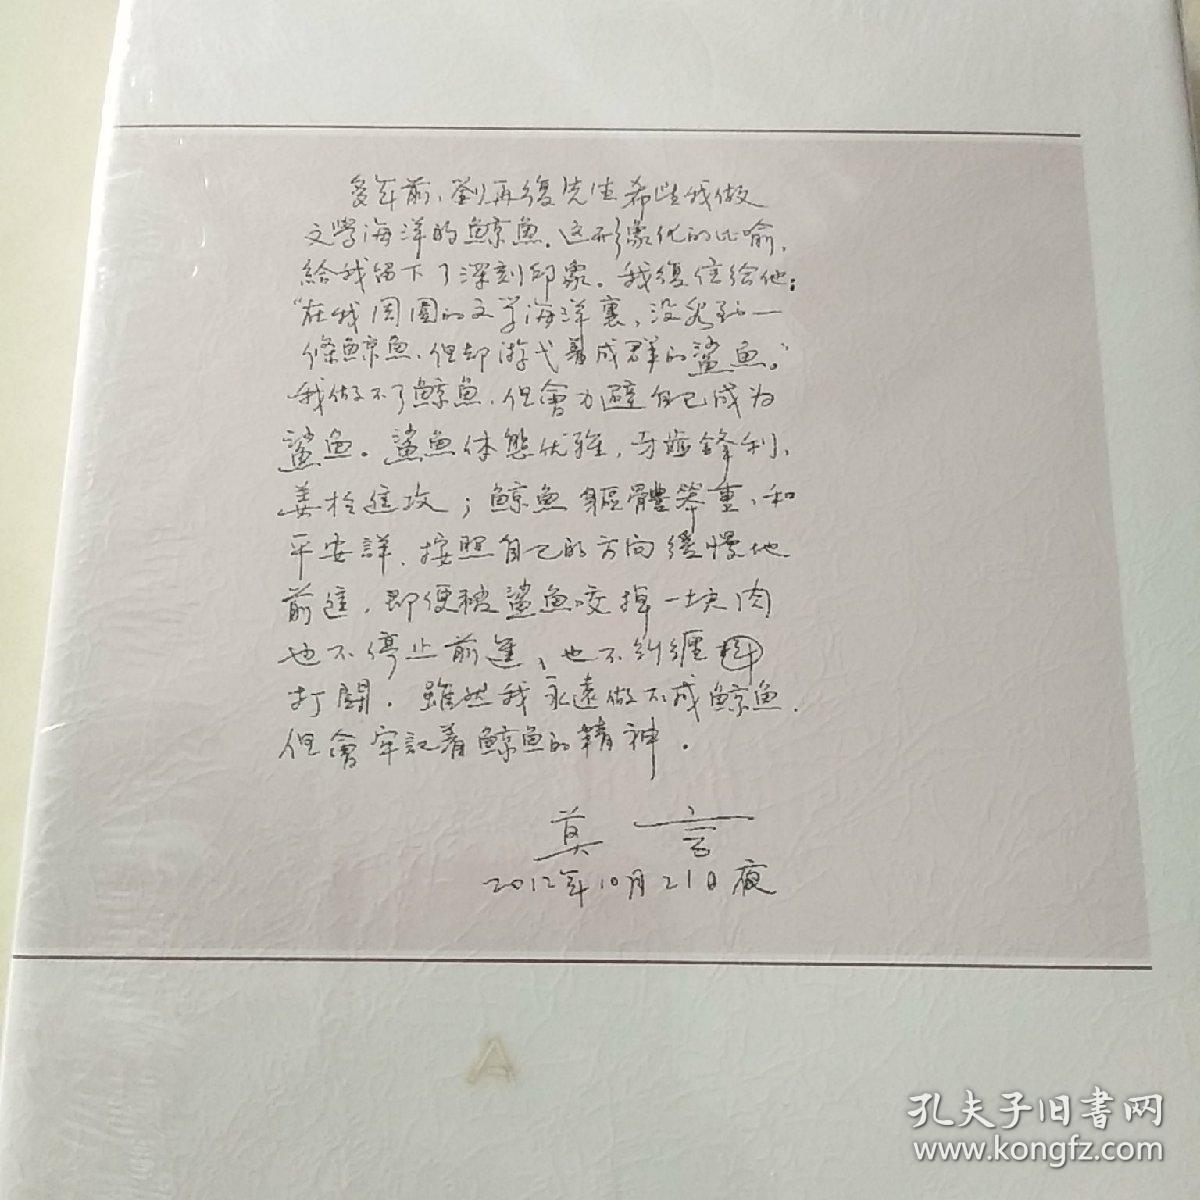 多年前、劉再復先生希望我做
文學海洋的鯨魚。这形象化的比喻，
給我留下了深刻印象。我復信给他：
“在我周圍的文学海洋裏，没看到一
條鯨魚，但却游弋着成群的鲨魚。”
我做不了鯨魚，但會力避自己成为
鯊魚。鯊魚体態优雅，牙齒鋒利，
善於進攻；鯨魚軀體笨重，和
平安詳，按照自己的方向緩慢地
前進，即便被鯊魚咬掉一块肉
也不停止前進、也不糾纏
打鬪。雖然我永遠做不成鯨魚，
但會牢記着鯨魚的精神。
莫言
2012年10月21日夜
A
孔夫子旧書网
www.kongfz.com